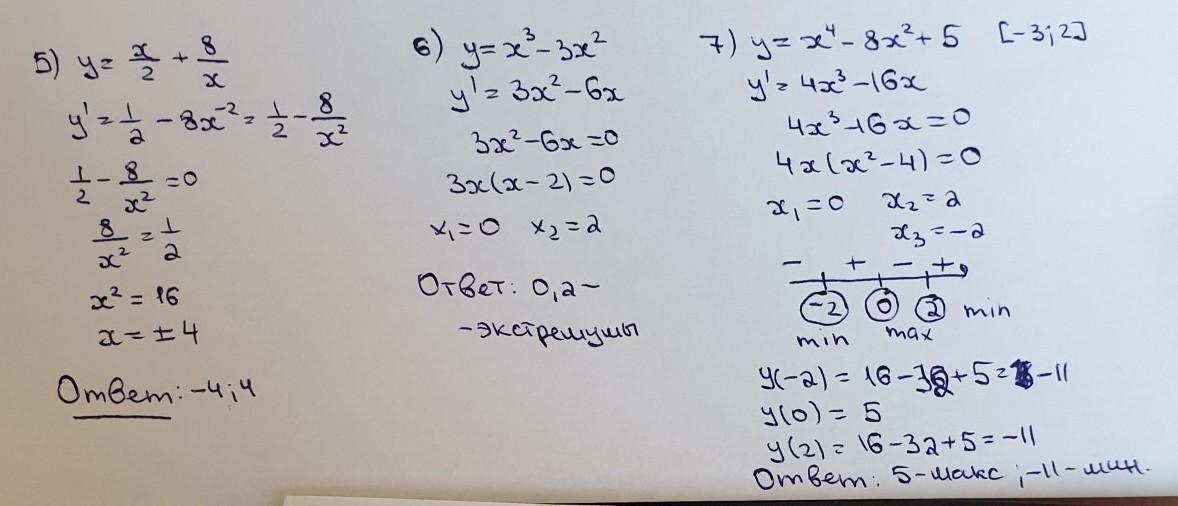 5) y = x/2 + 8/x
y' = 1/2 - 8x⁻² = 1/2 - 8/x²
1/2 - 8/x² = 0
8/x² = 1/2
x² = 16
x = ± 4
Ответ: -4; 4
6) y = x³ - 3x²
y' = 3x² - 6x
3x² - 6x = 0
3x(x - 2) = 0
x₁ = 0 x₂ = 2
Ответ: 0, 2 -
- экстремумы
7) y = x⁴ - 8x² + 5 [-3; 2]
y' = 4x³ - 16x
4x³ - 16x = 0
4x(x² - 4) = 0
x₁ = 0 x₂ = 2
x₃ = -2
- + - +
-2 0 2 min
min max
y(-2) = 16 - 32 + 5 = -11
y(0) = 5
y(2) = 16 - 32 + 5 = -11
Ответ: 5 - макс ; -11 - мин.